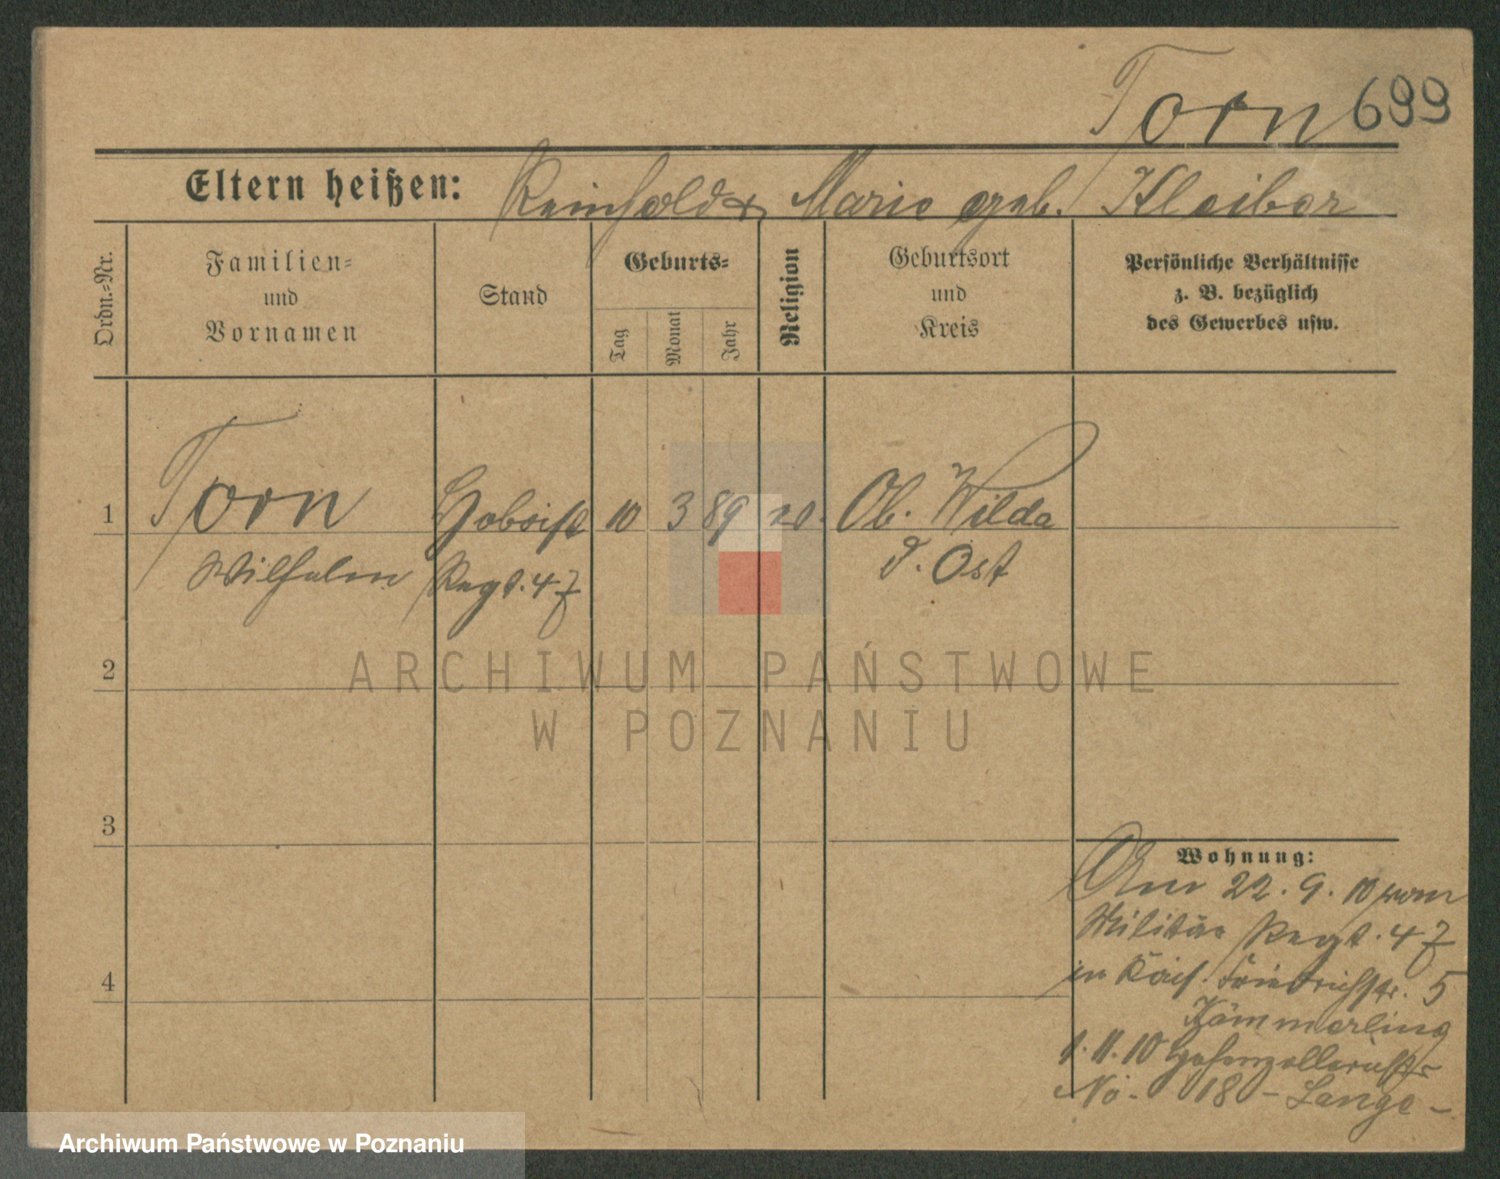 Torn 699
Eltern heißen: Reinhold & Marie geb. Kleiber
Ordn.-Nr.
Familien-
und
Vornamen
Stand
Geburts-
Tag
Monat
Jahr
Religion
Geburtsort
und
Kreis
Persönliche Verhältnisse
z. B. bezüglich
des Gewerbes usw.
1 Torn Hoboist 10 3 89 Ob. Wilda
Wilhelm Regt. 47 P. Ost
2
3
4
Wohnung:
Am 22. 9. 10 vom
Militär Regt. 47
in Kais. Friedrichstr. 5
Kämmerling
1. 11. 10 Hohenzollernstr
No. 18 - Lange -
ARCHIWUM PAŃSTWOWE
W POZNANIU
Archiwum Państwowe w Poznaniu